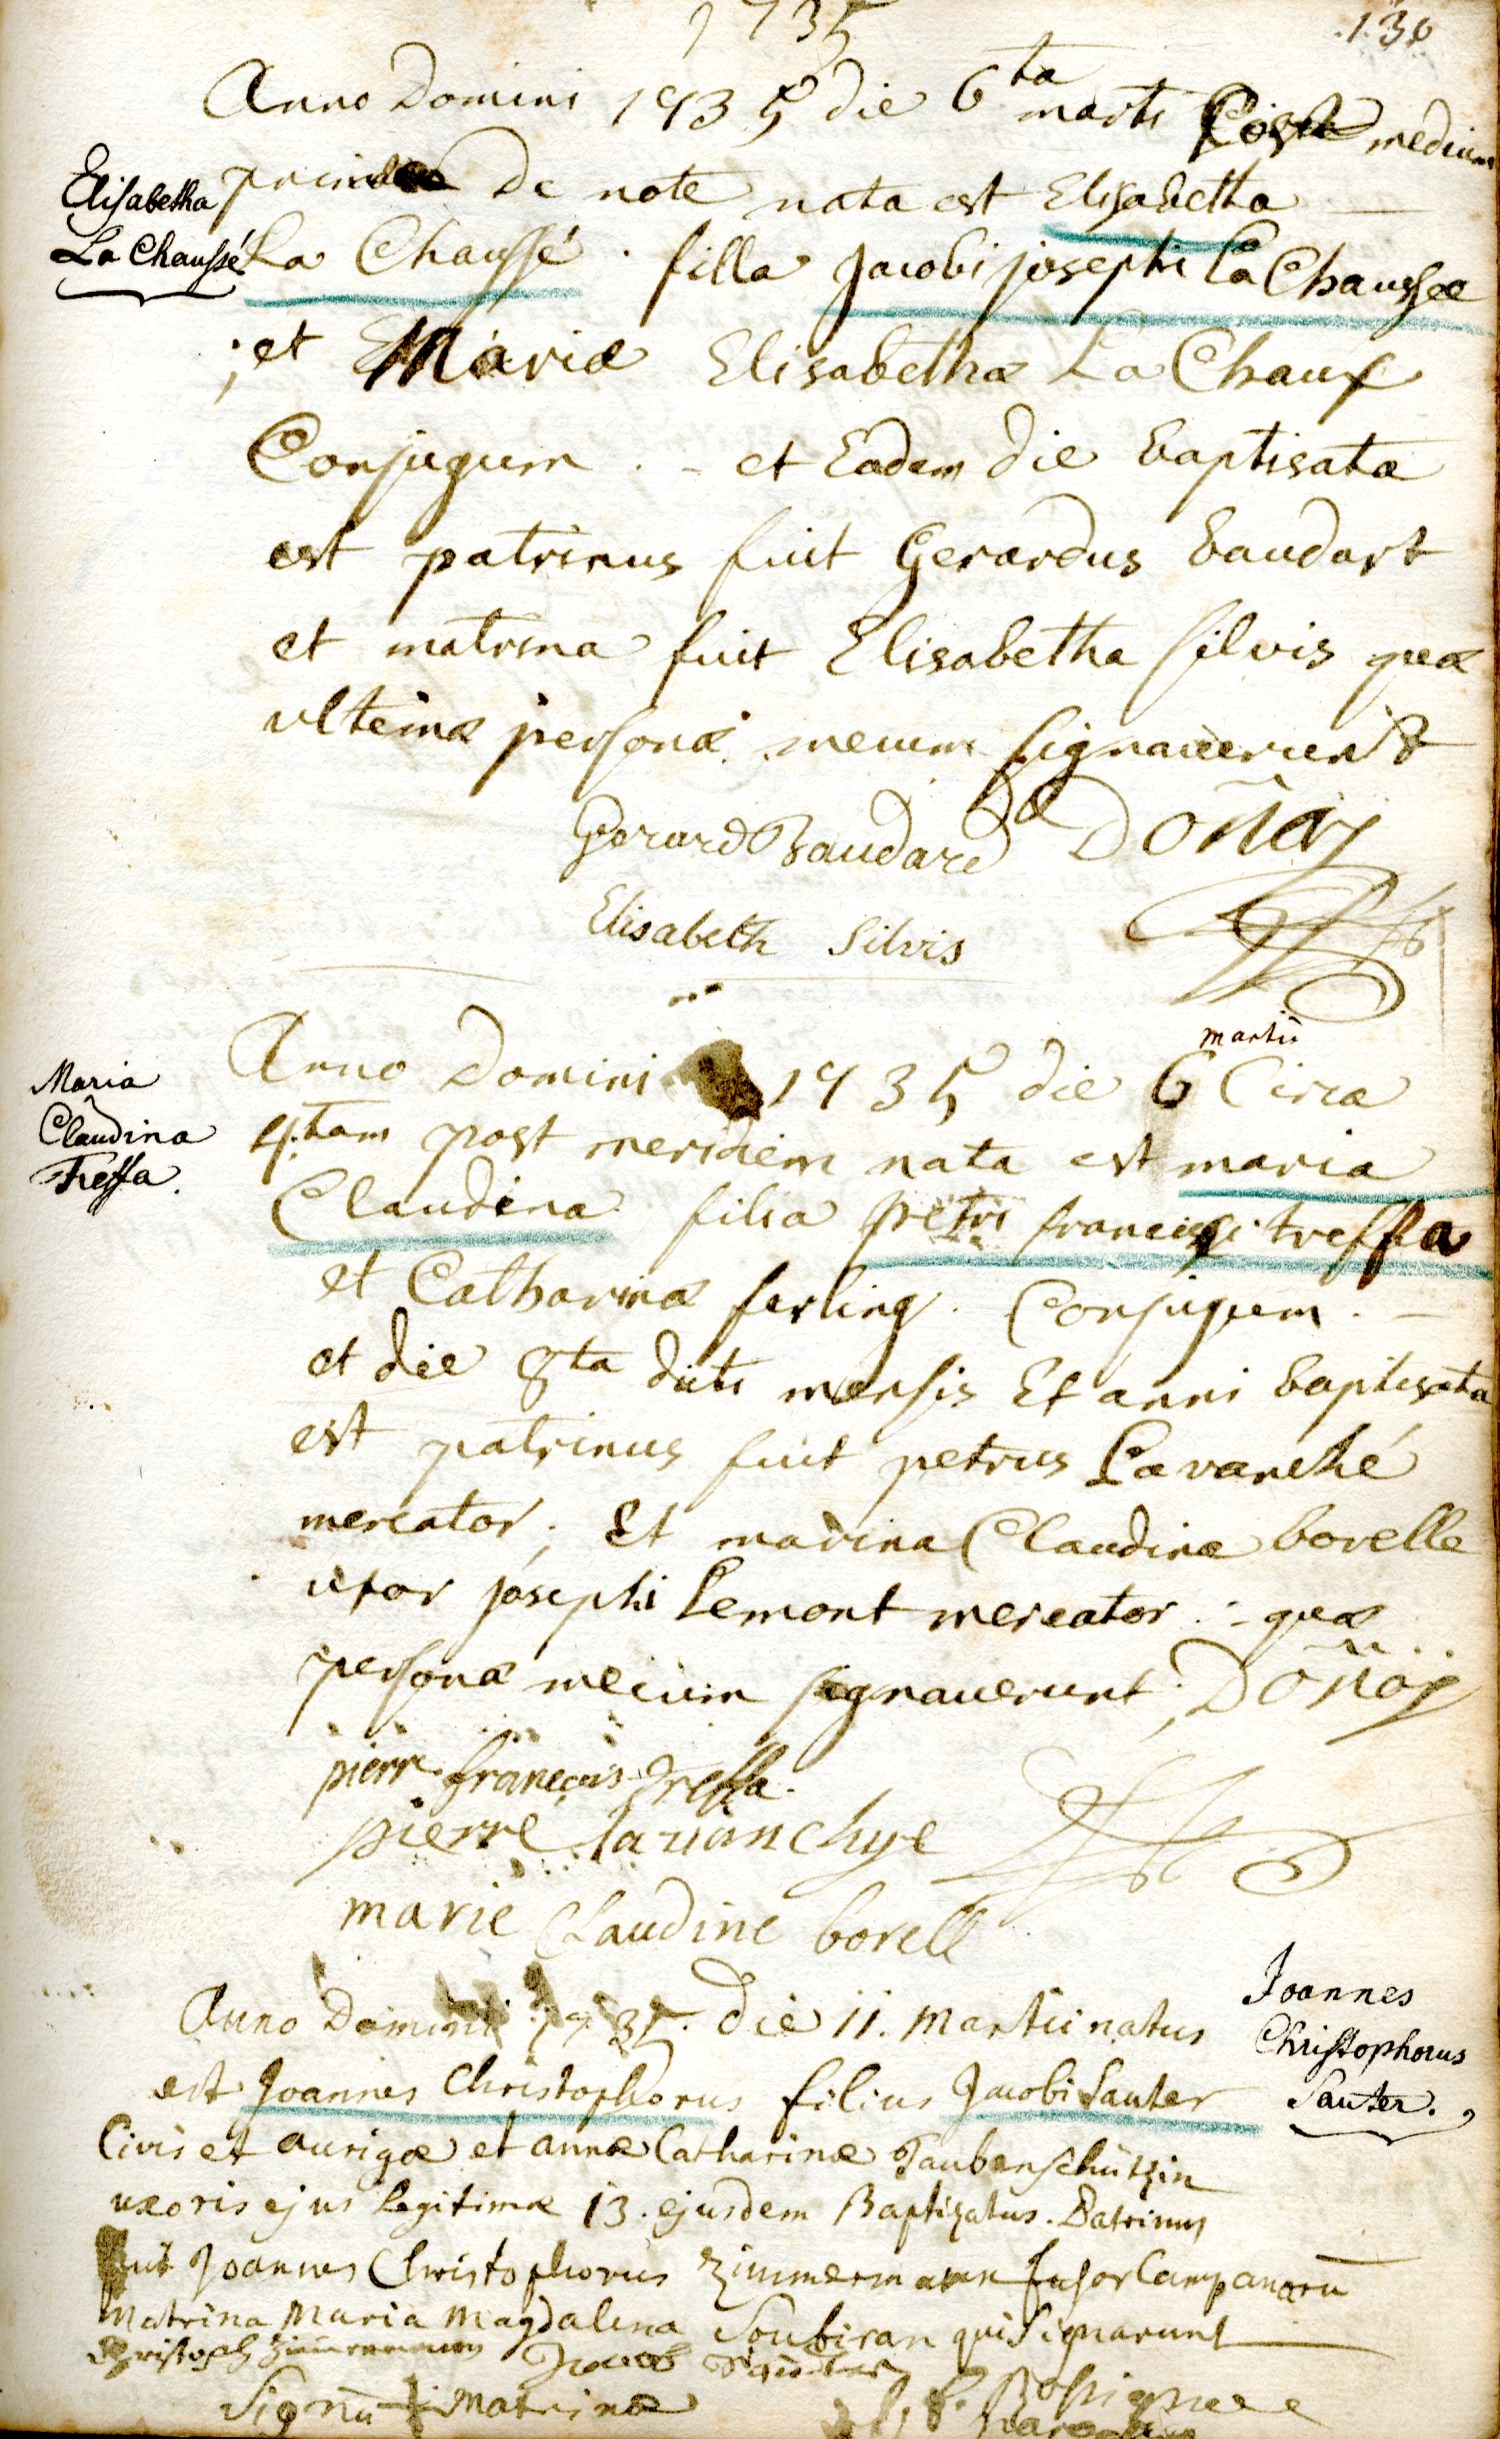 1735
130
Anno Domini 1735 die 6ta marti Post medium
Elisabetha
La Chaussé
de note nata est Elisabetha
La Chaussé. filla Jacobi josephi La Chaussee
et Mariæ Elisabethæ La Chaux
Conjugum. - et Eadem die baptisata
est patrinus fuit Gerardus baudart
et matrina fuit Elisabetha silvis quæ
ultimæ personæ mecum signaverunt
Gerard Baudard
Elisabeth Silvis
Maria
Claudina
Treffa.
Anno Domini 1735 die 6 martii Circa
4.tam post meridiem nata est maria
Claudina filia petri francisci treffa
et Catharinæ ferling. Conjugum.
et die 8ta dicti mensis Et anni baptisata
est patrinus fuit petrus Lavanché
mercator; Et matrina Claudina borelle
uxor josephi Lemont mercator. - quæ
personæ mecum signaverunt;
pierre françois treffa.
pierre lavanchye
marie Claudine borell
Joannes
Christophorus
Sauter.
Anno Domini 1735. die 11. Martii natus
est Joannes Christophorus filius Jacobi Sauter
Civis et aurigæ et annæ Catharinæ Taubenschützin
uxoris ejus legitimæ 13. ejusdem Baptizatus. Patrinus
fuit Joannes Christophorus Zimmermann fusor Campanarū
Matrina Maria Magdalena Soubiran qui signarunt
Christoph Zimmermann Jacob Sauter
Signū + Matrinæ